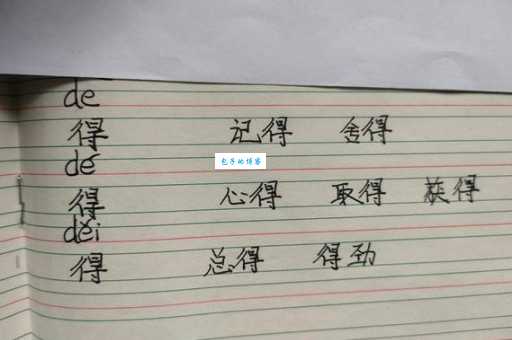 de
得 记得 舍得
包子的博客
dé
得 心得 取得 获得
děi
得 总得 得劲